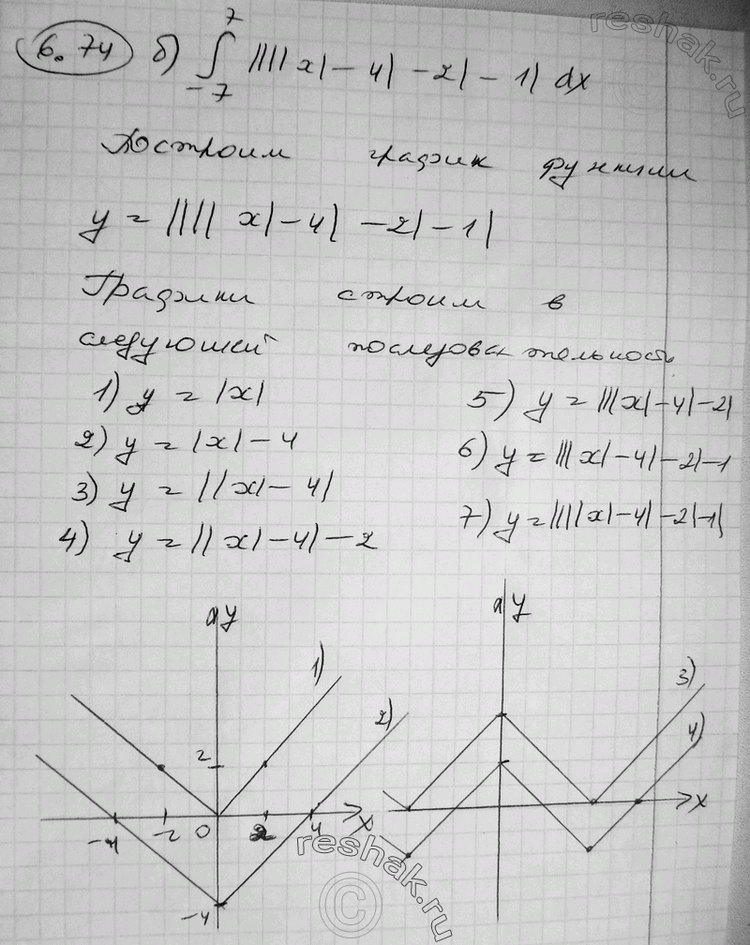 6.74 б) ∫₋₇⁷ ||||x|-4|-2|-1| dx
Построим график функции
y = ||||x|-4|-2|-1|
Графики строим в
следующей последовательность
1) y = |x|
2) y = |x|-4
3) y = ||x|-4|
4) y = ||x|-4|-2
5) y = |||x|-4|-2|
6) y = |||x|-4|-2|-1
7) y = ||||x|-4|-2|-1|
y
1)
2)
2
-4 -2 0 2 4 x
-4
y
3)
4)
x
reshak.ru
reshak.ru
©